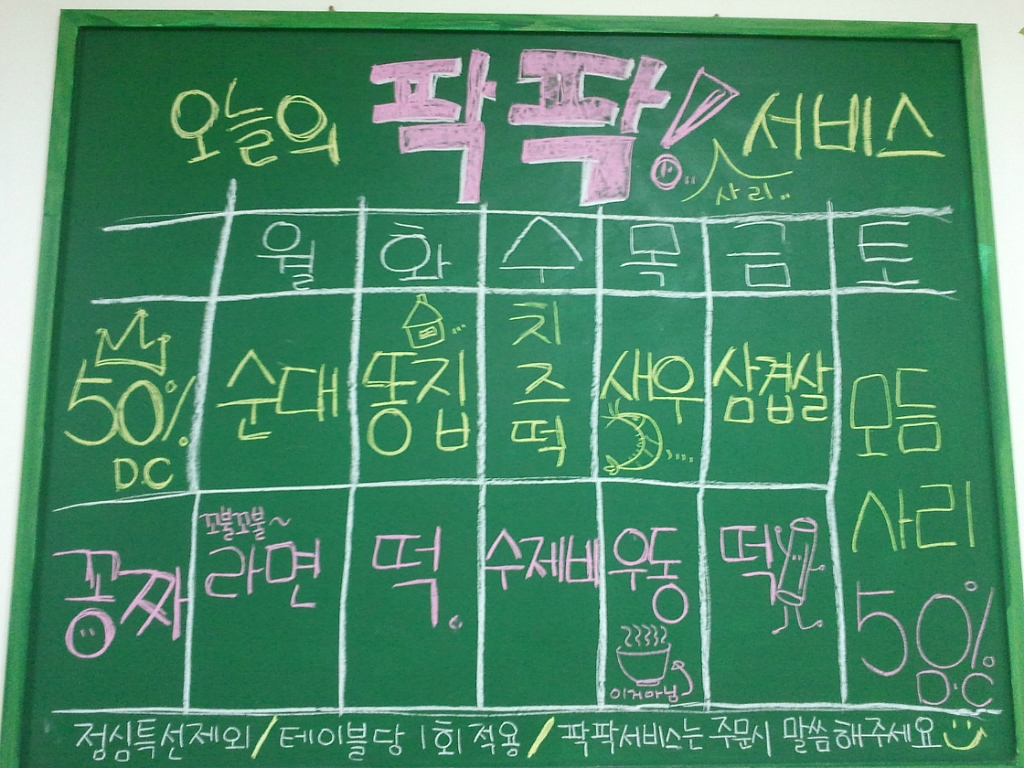 오늘의 팍팍! 사리 서비스
월 화 수 목 금 토
50% D.C 순대 똥집 치즈떡 새우 삼겹살 모듬사리 50% D.C
꽁짜 꼬불꼬불~ 라면 떡. 수제비 우동 떡
이거아님
점심특선제외 / 테이블당 1회 적용 / 팍팍서비스는 주문시 말씀해주세요